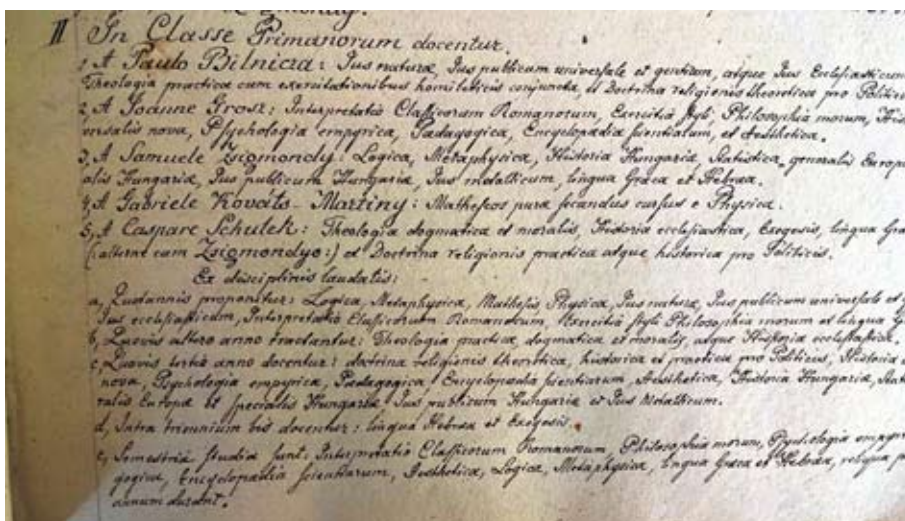 II In Classe Primanorum docentur.
1, A Paulo Bilnicza: Jus naturæ, Jus publicum universale et gentium, atque Jus Ecclesiasticum
Theologia practica cum exercitationibus homileticis conjuncta, et Doctrina religionis theoretica pro Politicis
2, A Joanne Grosz: Interpretatio Classicorum Romanorum, Exercitia styli, Philosophia morum, His
versalis nova, Psychologia empyrica, Pædagogica, Encyclopædia scientiarum, et Aesthetica.
3, A Samuele Zsigmondy: Logica, Metaphysica, Historia Hungariæ, Statistica generalis Europæ
alis Hungariæ, Jus publicum Hungariæ, Jus metallicum, lingua Græca et Hebræa.
4, A Gabriele Kováts-Martiny: Matheseos puræ secundus cursus e Physica.
5, A Caspare Schulek: Theologia dogmatica et moralis, Historia ecclesiastica, Exegesis, lingua Græ
(: alterne cum Zsigmondyo:) et Doctrina religionis practica atque historica pro Politicis.
Ex disciplinis laudatis:
a, Quotannis proponitur: Logica, Metaphysica, Mathesis, Physica, Jus naturæ, Jus publicum universale et g
Jus ecclesiasticum, Interpretatio Classicorum Romanorum, Exercitia styli Philosophia morum et lingua G
b, Quovis altero anno tractantur: Theologia practica, dogmatica et moralis, atque Historia ecclesiastica.
c, Quovis tertio anno docentur: doctrina religionis theoritica, historica et practica pro Politicis, Historia
nova, Psychologia empyrica, Pædagogica, Encyclopædia scientiarum, Aesthetica, Historia Hungariæ, Stati
ralis Europæ et specialis Hungariæ Jus publicum Hungariæ et Jus Metallicum.
d, Intra triennium bis docentur: lingua Hebræa et Exegesis.
e, Semestria studia sunt: Interpretatio Classicorum Romanorum Philosophia morum, Psychologia empyr
gogica, Encyclopædia scientiarum, Aesthetica, Logica, Metaphysica, lingua Græca et Hebræa, reliqua p
annum durant.